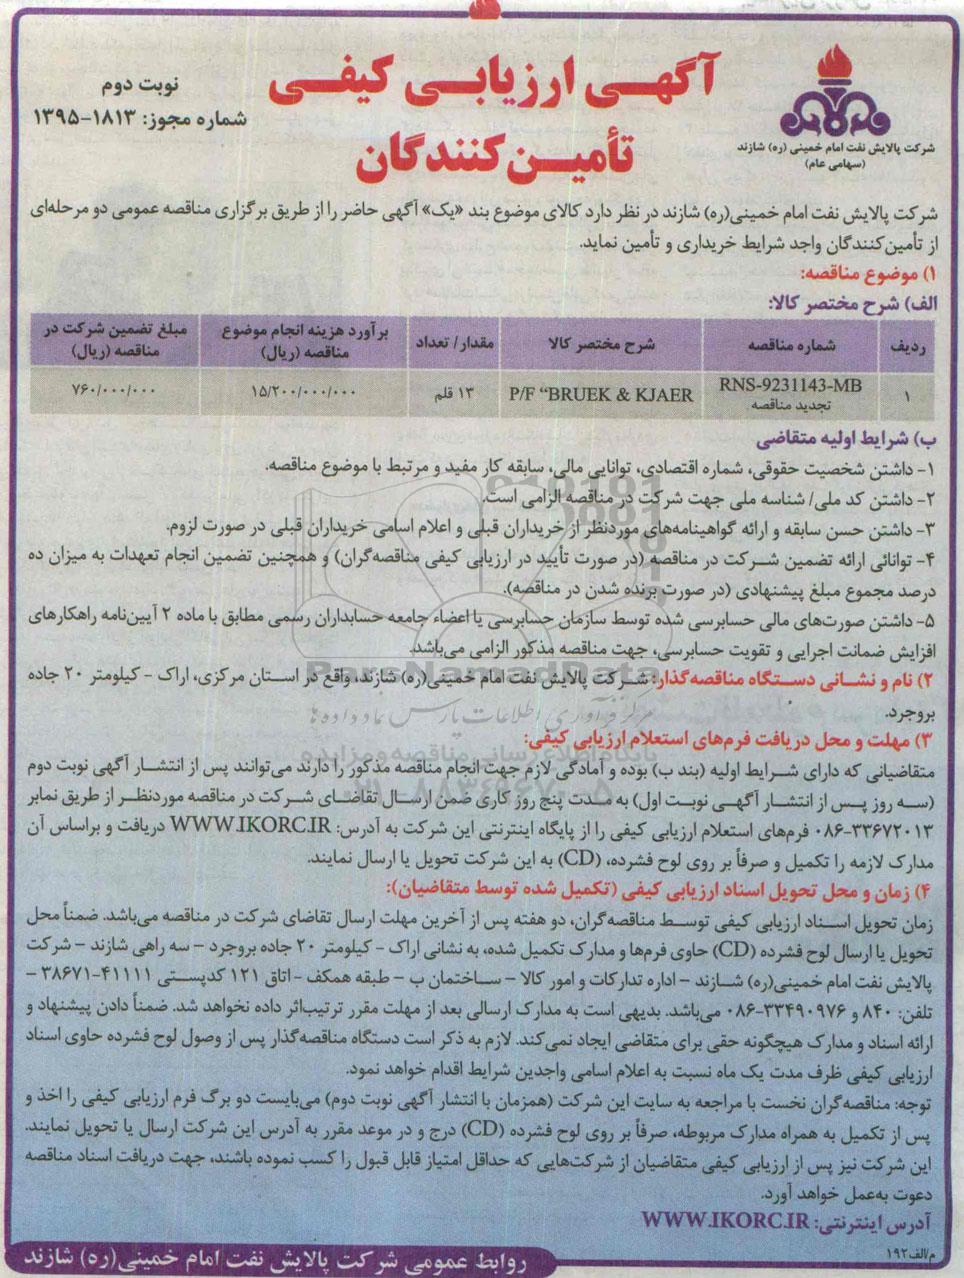 آگهی ارزیابی کیفی
تأمین‌کنندگان
نوبت دوم
شماره مجوز: ۱۸۱۳-۱۳۹۵
شرکت پالایش نفت امام خمینی (ره) شازند
(سهامی عام)
شرکت پالایش نفت امام خمینی(ره) شازند در نظر دارد کالای موضوع بند «یک» آگهی حاضر را از طریق برگزاری مناقصه عمومی دو مرحله‌ای
از تأمین‌کنندگان واجد شرایط خریداری و تأمین نماید.
۱) موضوع مناقصه:
الف) شرح مختصر کالا:
ردیف شماره مناقصه شرح مختصر کالا مقدار/ تعداد برآورد هزینه انجام موضوع مناقصه (ریال) مبلغ تضمین شرکت در مناقصه (ریال)
۱ RNS-9231143-MB تجدید مناقصه P/F “BRUEK & KJAER ۱۳ قلم ۱۵/۲۰۰/۰۰۰/۰۰۰ ۷۶۰/۰۰۰/۰۰۰
ب) شرایط اولیه متقاضی
۱- داشتن شخصیت حقوقی، شماره اقتصادی، توانایی مالی، سابقه کار مفید و مرتبط با موضوع مناقصه.
۲- داشتن کد ملی/ شناسه ملی جهت شرکت در مناقصه الزامی است.
۳- داشتن حسن سابقه و ارائه گواهینامه‌های موردنظر از خریداران قبلی و اعلام اسامی خریداران قبلی در صورت لزوم.
۴- توانائی ارائه تضمین شرکت در مناقصه (در صورت تأیید در ارزیابی کیفی مناقصه‌گران) و همچنین تضمین انجام تعهدات به میزان ده
درصد مجموع مبلغ پیشنهادی (در صورت برنده شدن در مناقصه).
۵- داشتن صورت‌های مالی حسابرسی شده توسط سازمان حسابرسی یا اعضاء جامعه حسابداران رسمی مطابق با ماده ۲ آیین‌نامه راهکارهای
افزایش ضمانت اجرایی و تقویت حسابرسی، جهت مناقصه مذکور الزامی می‌باشد.
۲) نام و نشانی دستگاه مناقصه‌گذار: شرکت پالایش نفت امام خمینی(ره) شازند، واقع در استان مرکزی، اراک - کیلومتر ۲۰ جاده
بروجرد.
۳) مهلت و محل دریافت فرم‌های استعلام ارزیابی کیفی:
متقاضیانی که دارای شرایط اولیه (بند ب) بوده و آمادگی لازم جهت انجام مناقصه مذکور را دارند می‌توانند پس از انتشار آگهی نوبت دوم
(سه روز پس از انتشار آگهی نوبت اول) به مدت پنج روز کاری ضمن ارسال تقاضای شرکت در مناقصه موردنظر از طریق نمابر
۳۳۶۷۲۰۱۳-۰۸۶ فرم‌های استعلام ارزیابی کیفی را از پایگاه اینترنتی این شرکت به آدرس: WWW.IKORC.IR دریافت و براساس آن
مدارک لازمه را تکمیل و صرفاً بر روی لوح فشرده، (CD) به این شرکت تحویل یا ارسال نمایند.
۴) زمان و محل تحویل اسناد ارزیابی کیفی (تکمیل شده توسط متقاضیان):
زمان تحویل اسناد ارزیابی کیفی توسط مناقصه‌گران، دو هفته پس از آخرین مهلت ارسال تقاضای شرکت در مناقصه می‌باشد. ضمناً محل
تحویل یا ارسال لوح فشرده (CD) حاوی فرم‌ها و مدارک تکمیل شده، به نشانی اراک - کیلومتر ۲۰ جاده بروجرد - سه راهی شازند - شرکت
پالایش نفت امام خمینی(ره) شازند - اداره تدارکات و امور کالا - ساختمان ب - طبقه همکف - اتاق ۱۲۱ کدپستی ۴۱۱۱۱-۳۸۶۷۱ -
تلفن: ۸۴۰ و ۳۳۴۹۰۹۷۶-۰۸۶ می‌باشد. بدیهی است به مدارک ارسالی بعد از مهلت مقرر ترتیب‌اثر داده نخواهد شد. ضمناً دادن پیشنهاد و
ارائه اسناد و مدارک هیچگونه حقی برای متقاضی ایجاد نمی‌کند. لازم به ذکر است دستگاه مناقصه‌گذار پس از وصول لوح فشرده حاوی اسناد
ارزیابی کیفی ظرف مدت یک ماه نسبت به اعلام اسامی واجدین شرایط اقدام خواهد نمود.
توجه: مناقصه‌گران نخست با مراجعه به سایت این شرکت (همزمان با انتشار آگهی نوبت دوم) می‌بایست دو برگ فرم ارزیابی کیفی را اخذ و
پس از تکمیل به همراه مدارک مربوطه، صرفاً بر روی لوح فشرده (CD) درج و در موعد مقرر به آدرس این شرکت ارسال یا تحویل نمایند.
این شرکت نیز پس از ارزیابی کیفی متقاضیان از شرکت‌هایی که حداقل امتیاز قابل قبول را کسب نموده باشند، جهت دریافت اسناد مناقصه
دعوت به‌عمل خواهد آورد.
آدرس اینترنتی: WWW.IKORC.IR
م/الف۱۹۲
روابط عمومی شرکت پالایش نفت امام خمینی(ره) شازند
ParsNamadData
مرکز فرآوری اطلاعات پارس نماد داده‌ها
پایگاه اطلاع رسانی مناقصه و مزایده